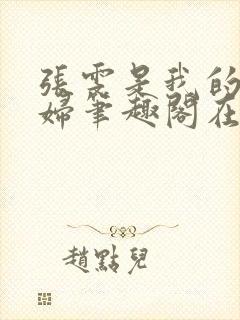 張雲是我的
婦筆趣閣在
趙點兒